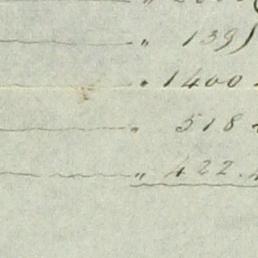 " 139
" 1400
" 518
" 422.